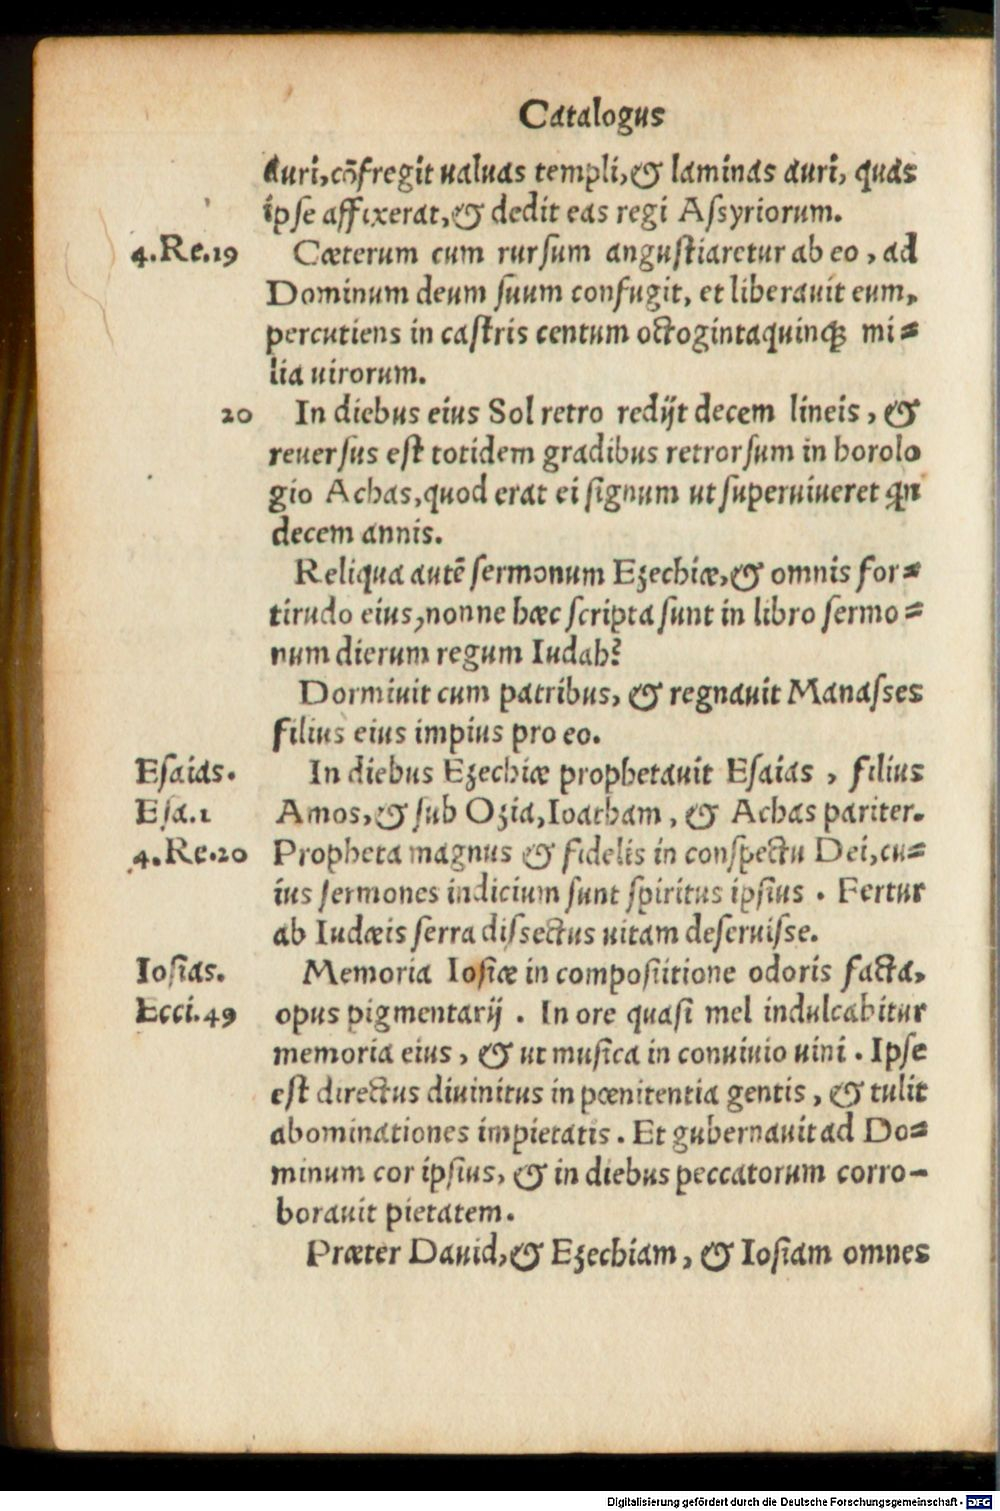 Catalogus
auri, cõfregit ualuas templi, & laminas auri, quas
ipse affixerat, & dedit eas regi Assyriorum.
4.Re.19 Cæterum cum rursum angustiaretur ab eo, ad
Dominum deum suum confugit, et liberauit eum,
percutiens in castris centum octogintaquinqꝫ mi-
lia uirorum.
20 In diebus eius Sol retro redijt decem lineis, &
reuersus est totidem gradibus retrorsum in horolo
gio Achas, quod erat ei signum ut superuiueret
decem annis.
Reliqua autē sermonum Ezechiæ, & omnis for-
tirudo eius, nonne hæc scripta sunt in libro sermo-
num dierum regum Iudah?
Dormiuit cum patribus, & regnauit Manasses
filius eius impius pro eo.
Esaias. In diebus Ezechiæ prophetauit Esaias, filius
Esa.1 Amos, & sub Ozia, Ioatham, & Achas pariter.
4.Re.20 Propheta magnus & fidelis in conspectu Dei, cu-
ius sermones indicium sunt spiritus ipsius. Fertur
ab Iudæis serra dissectus uitam deseruisse.
Iosias. Memoria Iosiæ in compositione odoris facta,
Ecci.49 opus pigmentarij. In ore quasi mel indulcabitur
memoria eius, & ut musica in conuiuio uini. Ipse
est directus diuinitus in pœnitentia gentis, & tulit
abominationes impietatis. Et gubernauit ad Do-
minum cor ipsius, & in diebus peccatorum corro-
borauit pietatem.
Præter Dauid, & Ezechiam, & Iosiam omnes
Digitalisierung gefördert durch die Deutsche Forschungsgemeinschaft - DFG